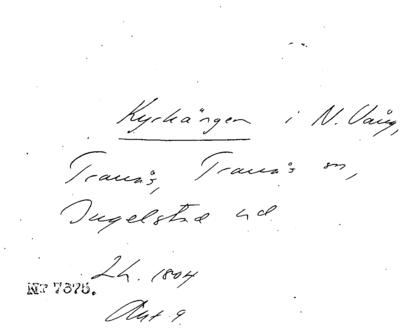 Kyrkängen i N. Vång,
Tranås, Tranås sn,
Ingelstad hd
Lh. 1804
NR 7375.
Akt 9